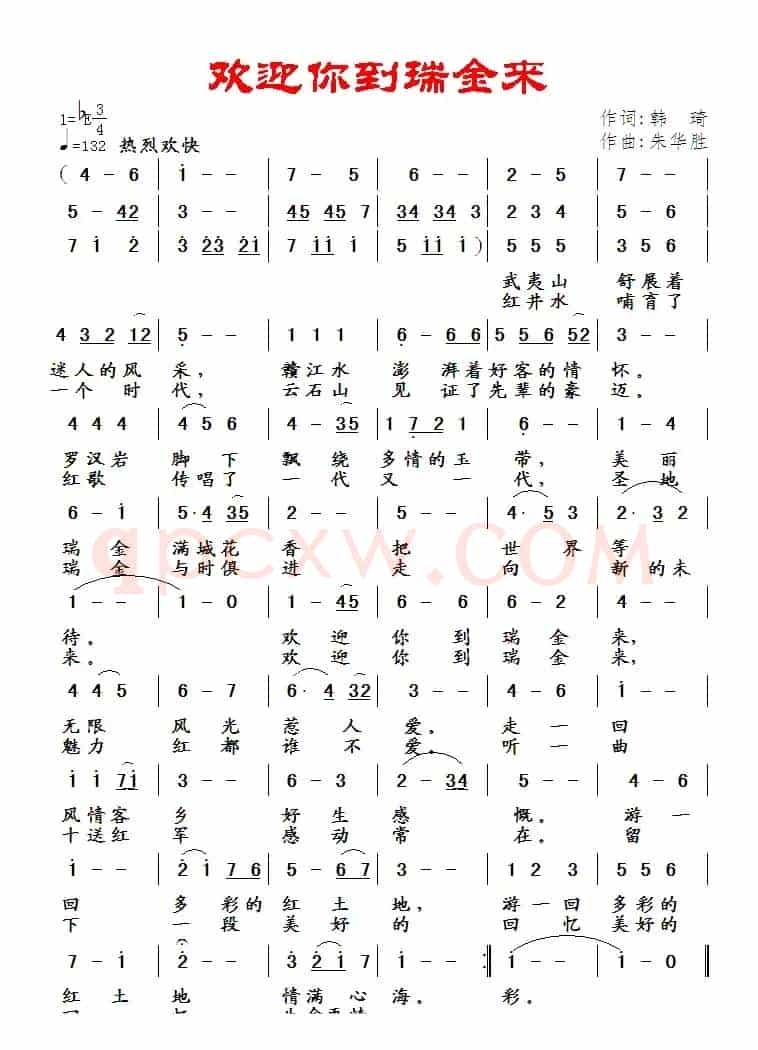 欢迎你到瑞金来
1=♭E 3/4
作词:韩 琦
♩=132 热烈欢快
作曲:朱华胜
( 4 - 6 | i - - | 7 - 5 | 6 - - | 2 - 5 | 7 - - |
5 - 42 | 3 - - | 45 45 7 | 34 34 6 | 2 3 4 | 5 - 6 |
7 i 2 | 3 23 21 | 7 i i i | 5 i i i ) | 5 5 5 | 3 5 6 |
武夷山 舒展着
红井水 哺育了
4 3 2 12 | 5 - - | 1 1 1 | 6 - 6 6 | 5 5 6 52 | 3 - - |
迷人的风 采, 赣江水 澎 湃着好客的情 怀。
一个 时 代, 云石山 见 证了先辈的豪 迈。
4 4 4 | 4 5 6 | 4 - 35 | 1 7 2 1 | 6 - - | 1 - 4 |
罗汉岩 脚 下 飘 绕 多情的玉 带, 美 丽
红歌 传唱了 一 代 又 一 代, 圣 地
6 - i | 5· 4 35 | 2 - - | 5 - - | 4· 5 3 | 2· 3 2 |
瑞 金 满城花 香 把 世 界 等
瑞 金 与时俱 进 走 向 新 的 未
qpcxw.COM
1 - - | 1 - 0 | 1 - 45 | 6 - 6 | 6 - 6 | 4 - - |
待。 欢 迎 你 到 瑞 金 来,
来。 欢 迎 你 到 瑞 金 来,
4 4 5 | 6 - 7 | 6· 4 32 | 5 - - | 4 - 6 | i - - |
无限 风 光 惹 人 爱。 走 一 回
魅力 红 都 谁 不 爱。 听 一 曲
i i 7i | 3 - - | 6 - 3 | 2 - 34 | 5 - - | 4 - 6 |
风情客 乡 好 生 感 慨。 游 一
十送红 军 感 动 常 在。 留
i - - | 2 i 7 6 | 5 - 6 7 | 3 - - | 1 2 3 | 5 5 6 |
回 多 彩的 红 土 地, 游 一回 多彩的
下 一段 美 好 的 回 忆 美好的
7 - i | 2 - - | 3 2i 7 | i - - | i - - :| i - - | i - 0 |
红 土 地 情满 心 海。 彩。